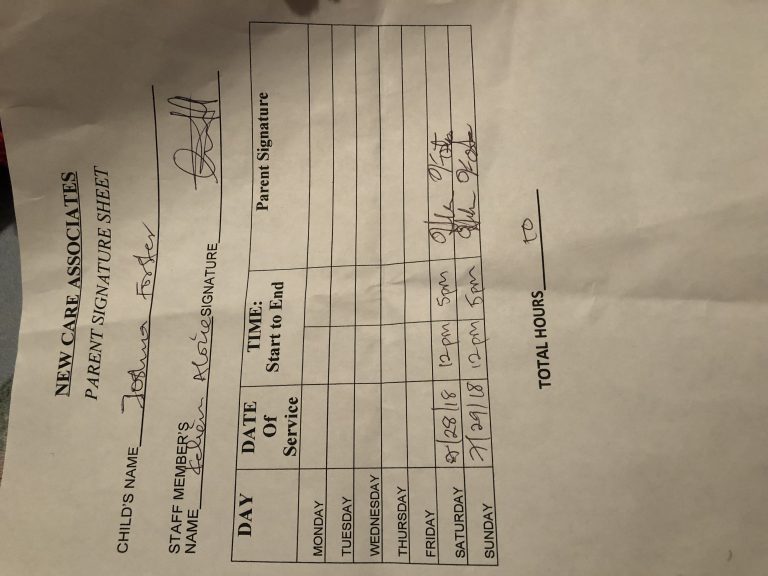 NEW CARE ASSOCIATES
PARENT SIGNATURE SHEET
CHILD'S NAME Joshua Forster
STAFF MEMBER'S
NAME SIGNATURE
DAY DATE Of Service TIME: Start to End Parent Signature
MONDAY
TUESDAY
WEDNESDAY
THURSDAY
FRIDAY
SATURDAY /28/18 12pm 5pm
SUNDAY 7/29/18 12pm 5pm
TOTAL HOURS 10